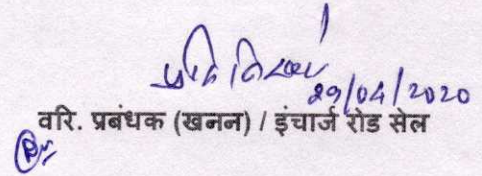 29/04/2020
वरि. प्रबंधक (खनन) / इंचार्ज रोड सेल